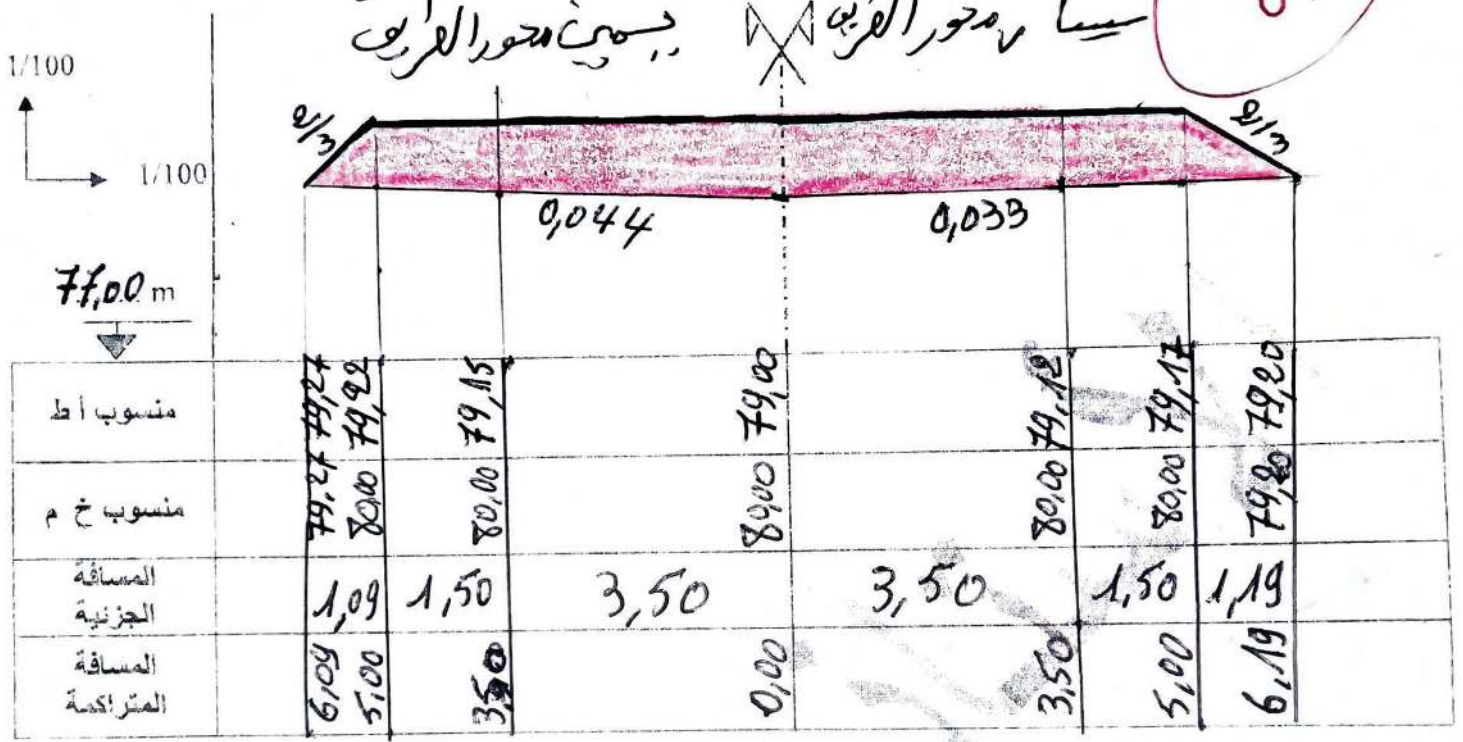 يسمين محور الطريق
محور الطريق
1/100
1/100
2/3
2/3
0,044
0,033
77,00 m
منسوب أ ط
79,27 79,22 79,15 79,00 79,12 79,17 79,20
منسوب خ م
79,27 80,00 80,00 80,00 80,00 80,00 79,20
المسافة الجزئية
1,09 1,50 3,50 3,50 1,50 1,19
المسافة المتراكمة
6,09 5,00 3,50 0,00 3,50 5,00 6,19